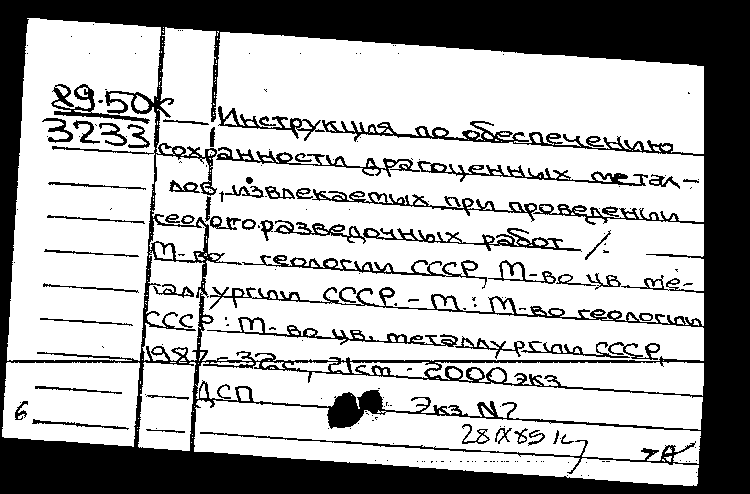 89-50к
3233
Инструкция по обеспечению
сохранности драгоценных метал-
лов, извлекаемых при проведении
геологоразведочных работ /:
М-во геологии СССР, М-во цв. ме-
таллургии СССР. - М.: М-во геологии
СССР: М-во цв. металлургии СССР,
1987 - 32с., 21см - 2000 экз
ДСП
Экз. N?
6
28 IX 89